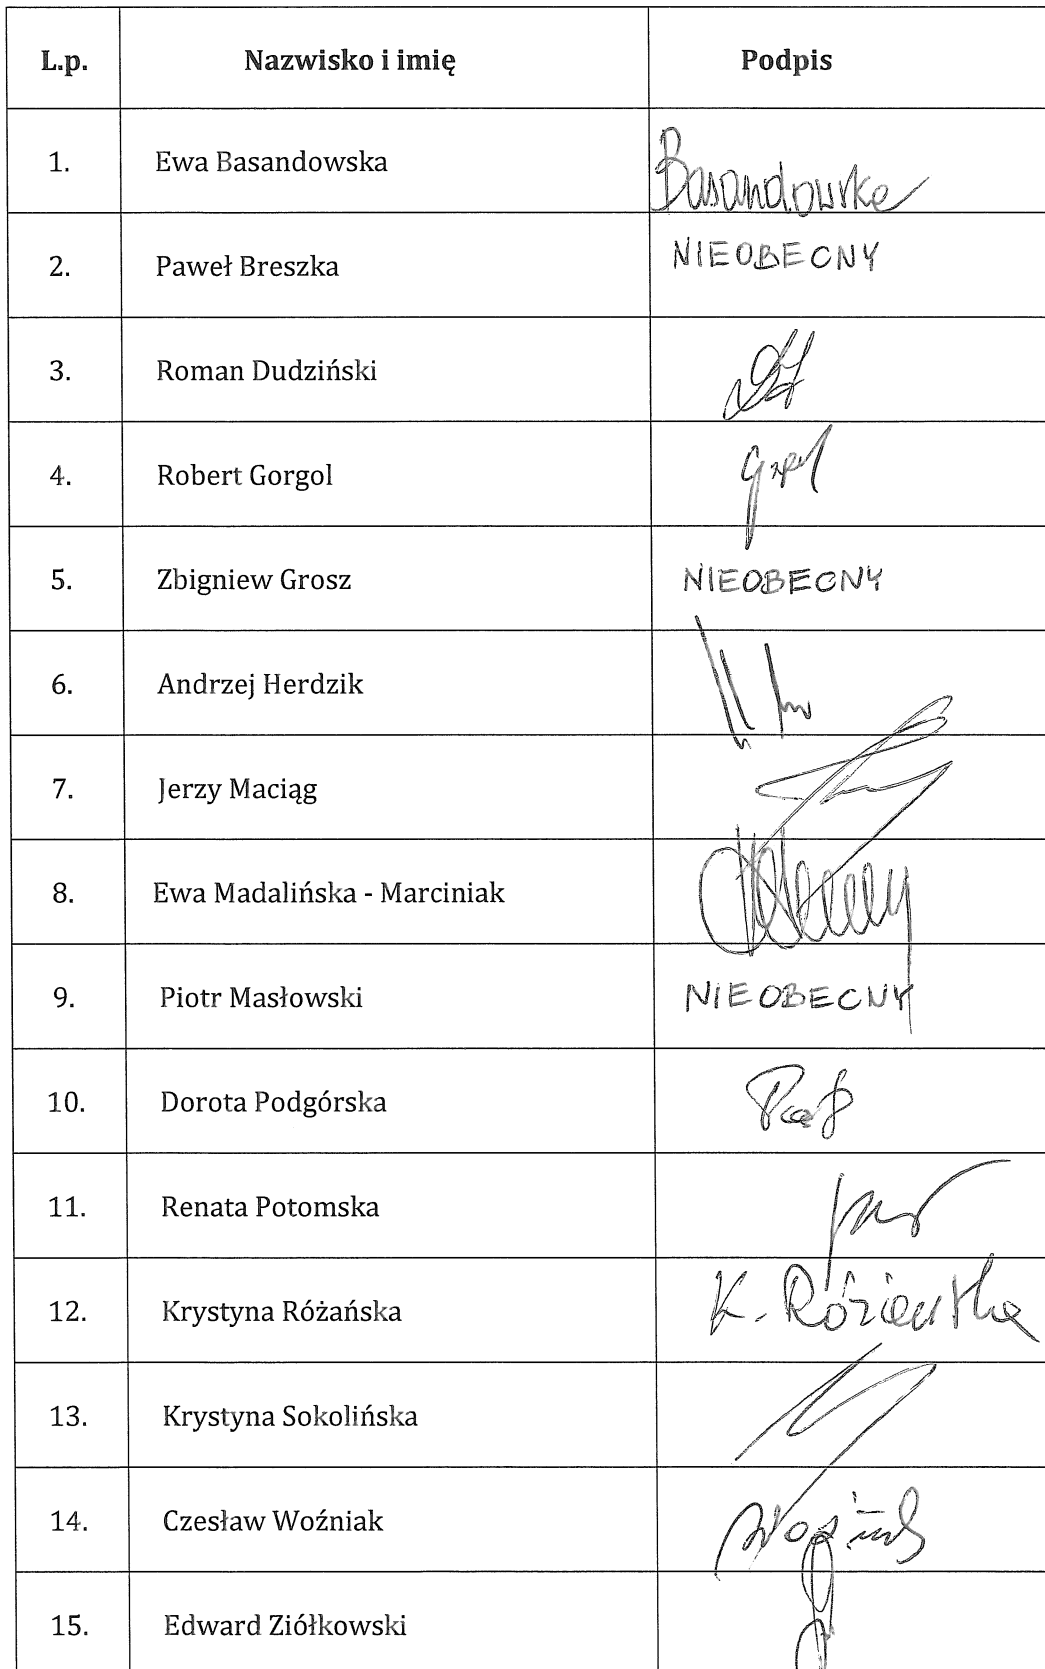 L.p. Nazwisko i imię Podpis
1. Ewa Basandowska Basandowska
2. Paweł Breszka NIEOBECNY
3. Roman Dudziński
4. Robert Gorgol
5. Zbigniew Grosz NIEOBECNY
6. Andrzej Herdzik
7. Jerzy Maciąg
8. Ewa Madalińska - Marciniak
9. Piotr Masłowski NIEOBECNY
10. Dorota Podgórska
11. Renata Potomska
12. Krystyna Różańska K. Różańska
13. Krystyna Sokolińska
14. Czesław Woźniak
15. Edward Ziółkowski